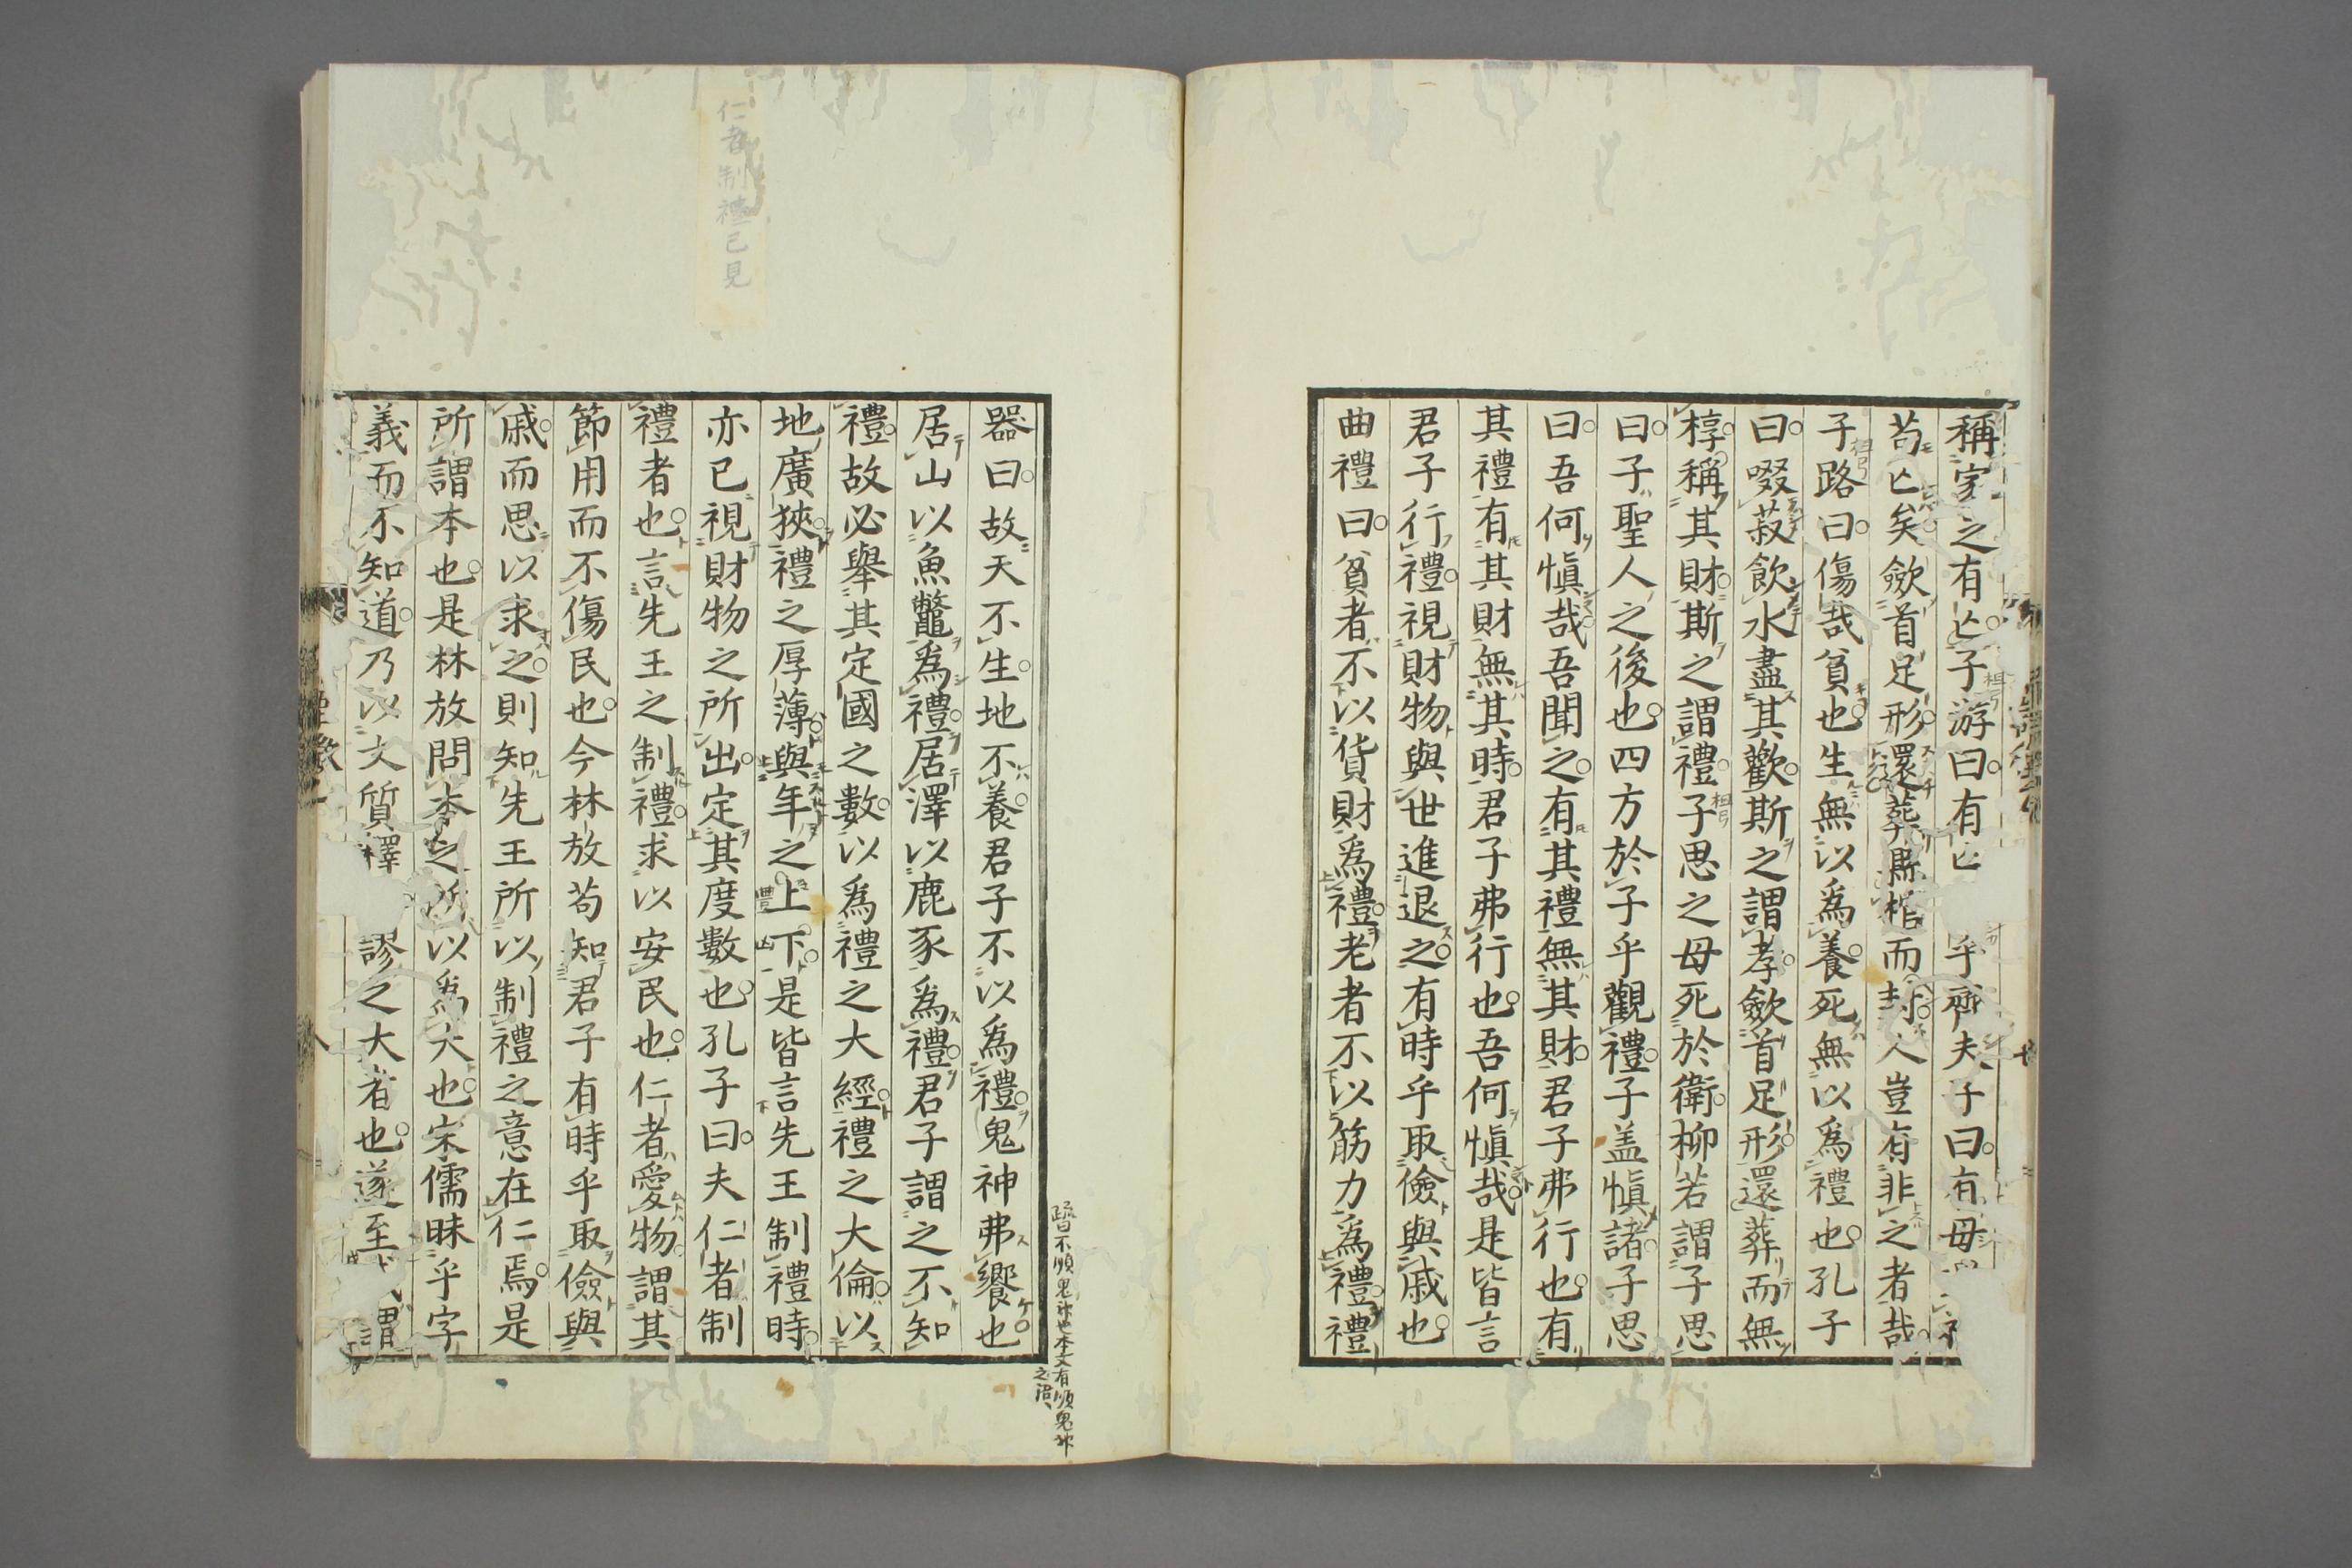 稱家之有亡子游曰有亡 乎齊夫子曰有毋
苟亡矣斂首足形還葬縣棺而封人豈有非之者哉
子路曰傷哉貧也生無以爲養死無以爲禮也孔子
曰啜菽飲水盡其歡斯之謂孝斂首足形還葬而無
椁稱其財斯之謂禮子思之母死於衛柳若謂子思
曰子聖人之後也四方於子乎觀禮子盖愼諸子思
曰吾何愼哉吾聞之有其禮無其財君子弗行也有
其禮有其財無其時君子弗行也吾何愼哉是皆言
君子行禮視財物與世進退之有時乎取儉與戚也
曲禮曰貧者不以貨財爲禮老者不以筋力爲禮禮
器曰故天不生地不養君子不以爲禮鬼神弗饗也
居山以魚鼈爲禮居澤以鹿豕爲禮君子謂之不知
禮故必舉其定國之數以爲禮之大經禮之大倫以
地廣狹禮之厚薄與年之上下是皆言先王制禮時
亦已視財物之所出定其度數也孔子曰夫仁者制
禮者也言先王之制禮求以安民也仁者愛物謂其
節用而不傷民也今林放苟知君子有時乎取儉與
戚而思以求之則知先王所以制禮之意在仁焉是
所謂本也是林放問本之所以爲大也宋儒昧乎字
義而不知道乃以文質釋 謬之大者也遂至 謂
仁者制禮已見
檀弓
檀弓
檀弓
豐
凶